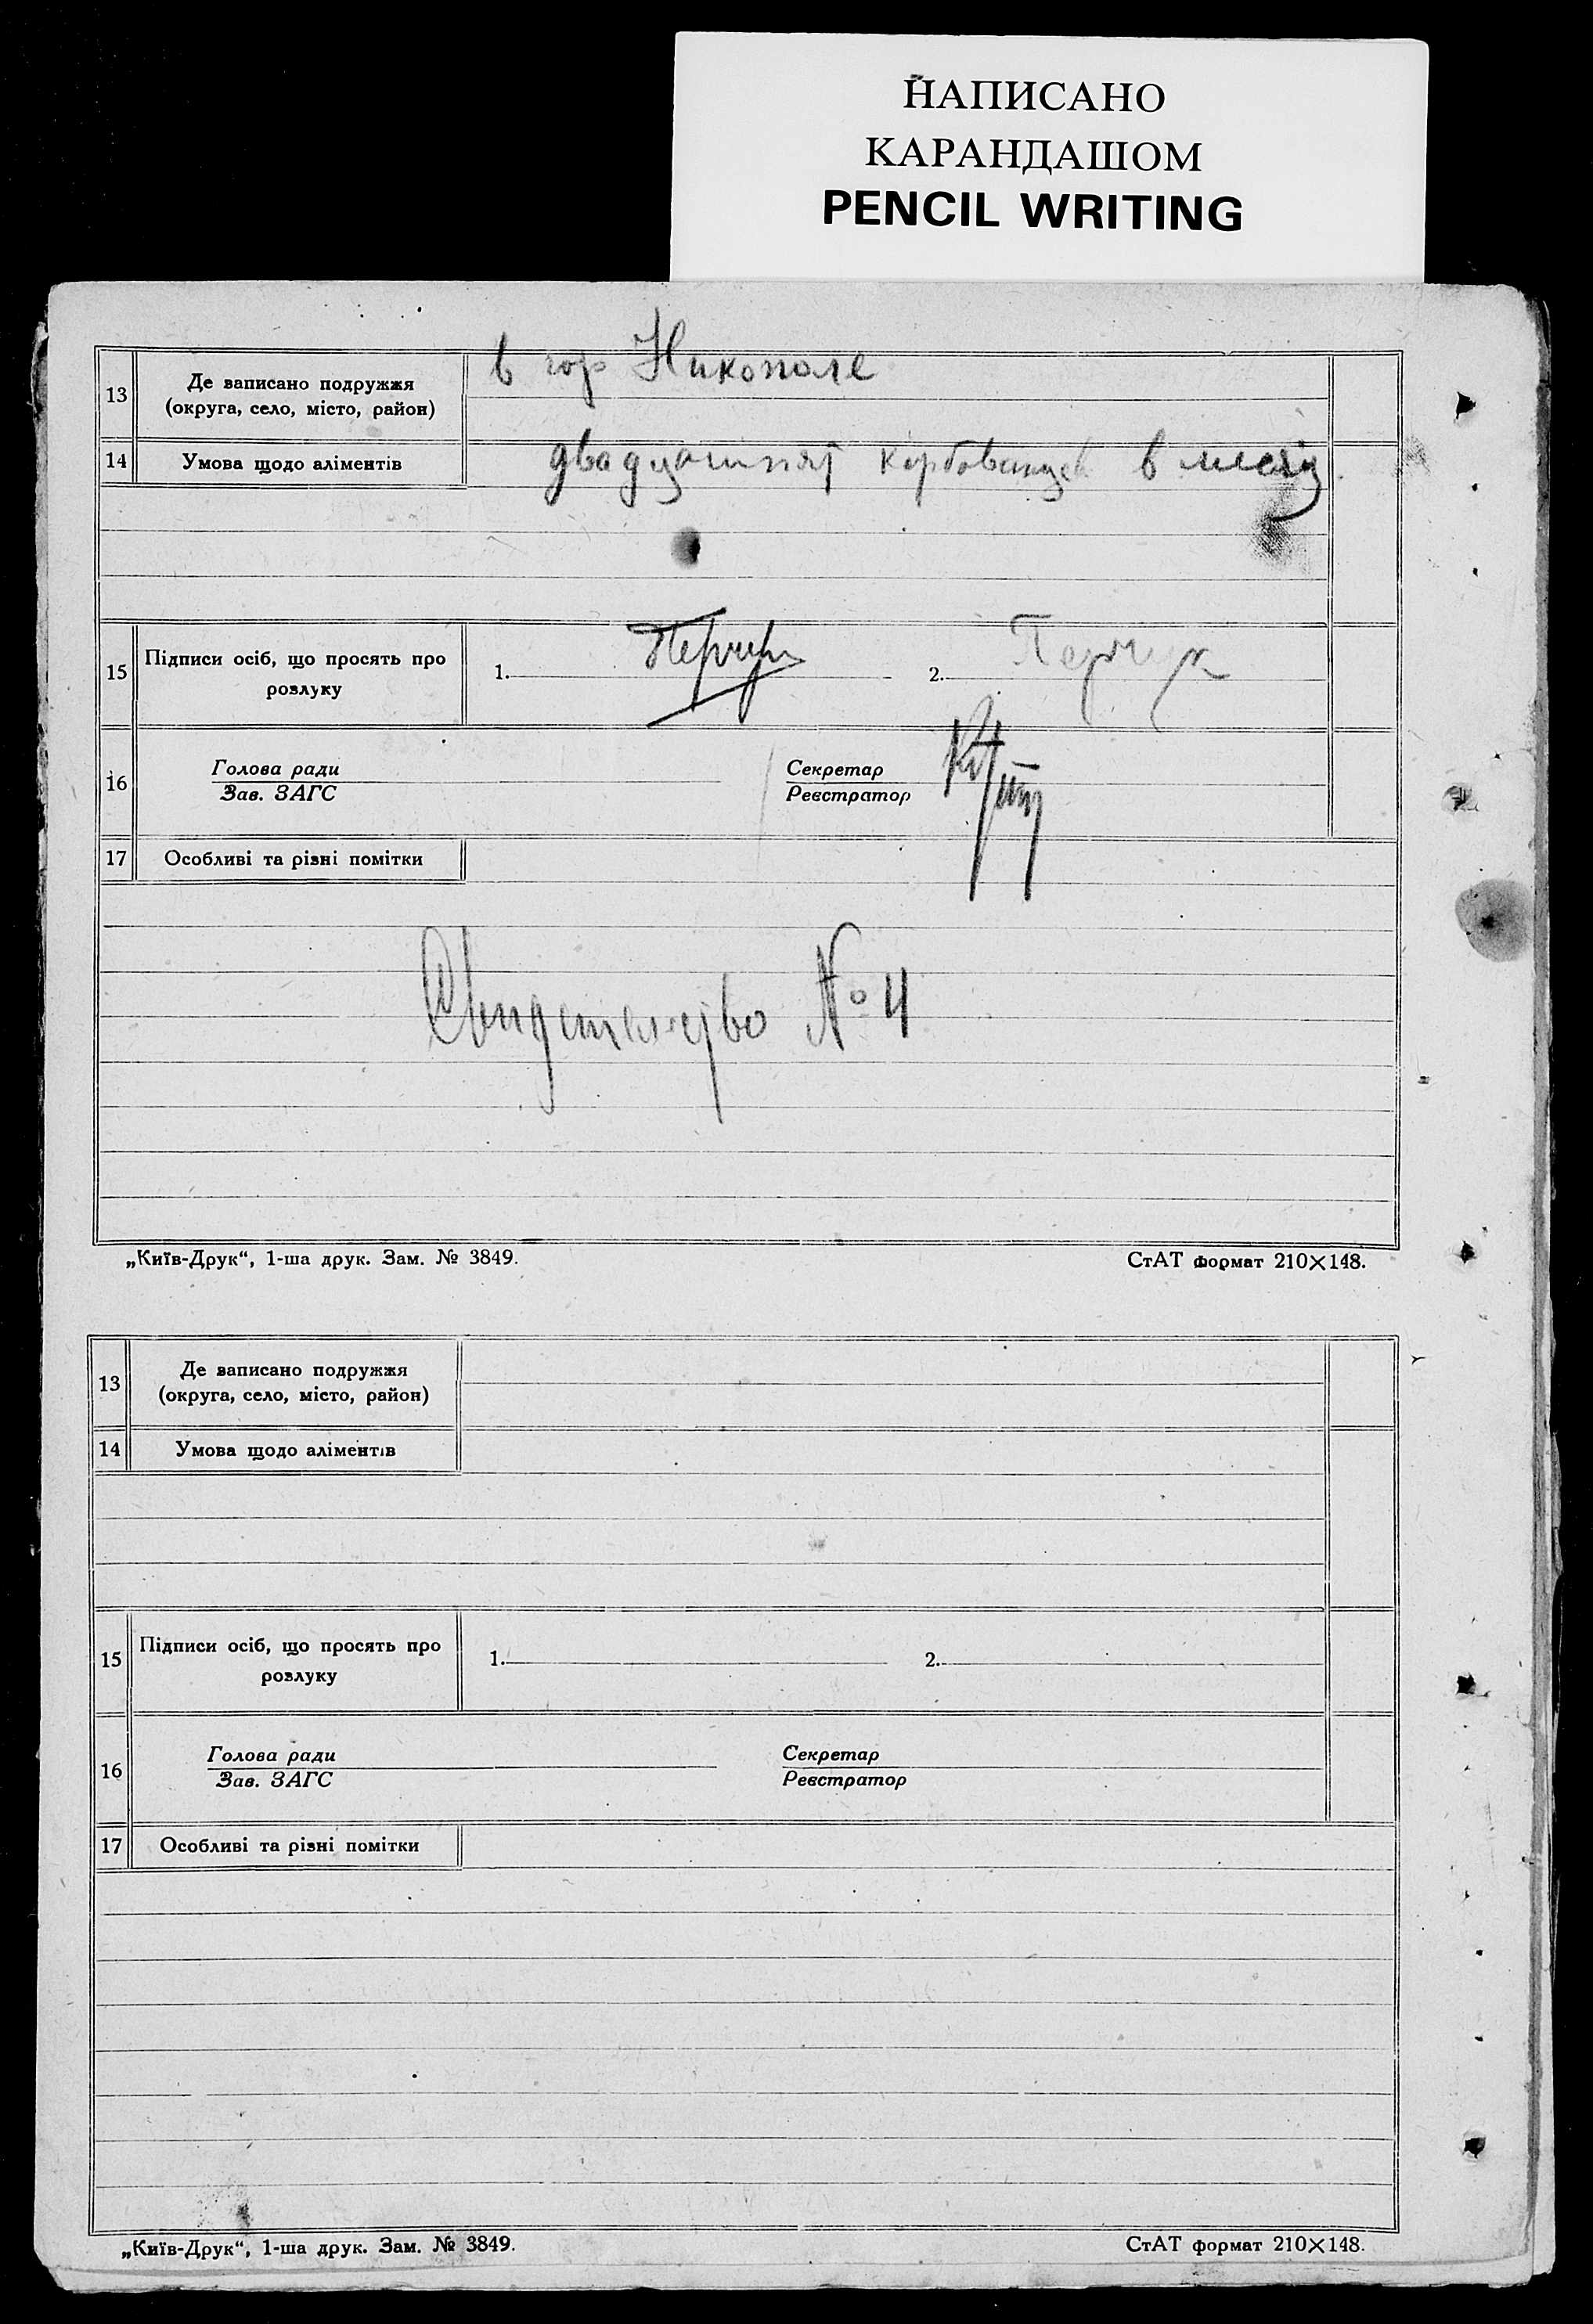 НАПИСАНО
КАРАНДАШОМ
PENCIL WRITING
13
Де записано подружжя
(округа, село, місто, район)
в гор Никополе
14
Умова щодо аліментів
двадцатпят карбованцев в месяц
15
Підписи осіб, що просять про
розлуку
1.
2.
16
Голова ради
Зав. ЗАГС
Секретар
Реєстратор
17
Особливі та різні помітки
Свидетелство № 4
„Київ-Друк“, 1-ша друк. Зам. № 3849.
СтАТ формат 210×148.
13
Де записано подружжя
(округа, село, місто, район)
14
Умова щодо аліментів
15
Підписи осіб, що просять про
розлуку
1.
2.
16
Голова ради
Зав. ЗАГС
Секретар
Реєстратор
17
Особливі та різні помітки
„Київ-Друк“, 1-ша друк. Зам. № 3849.
СтАТ формат 210×148.